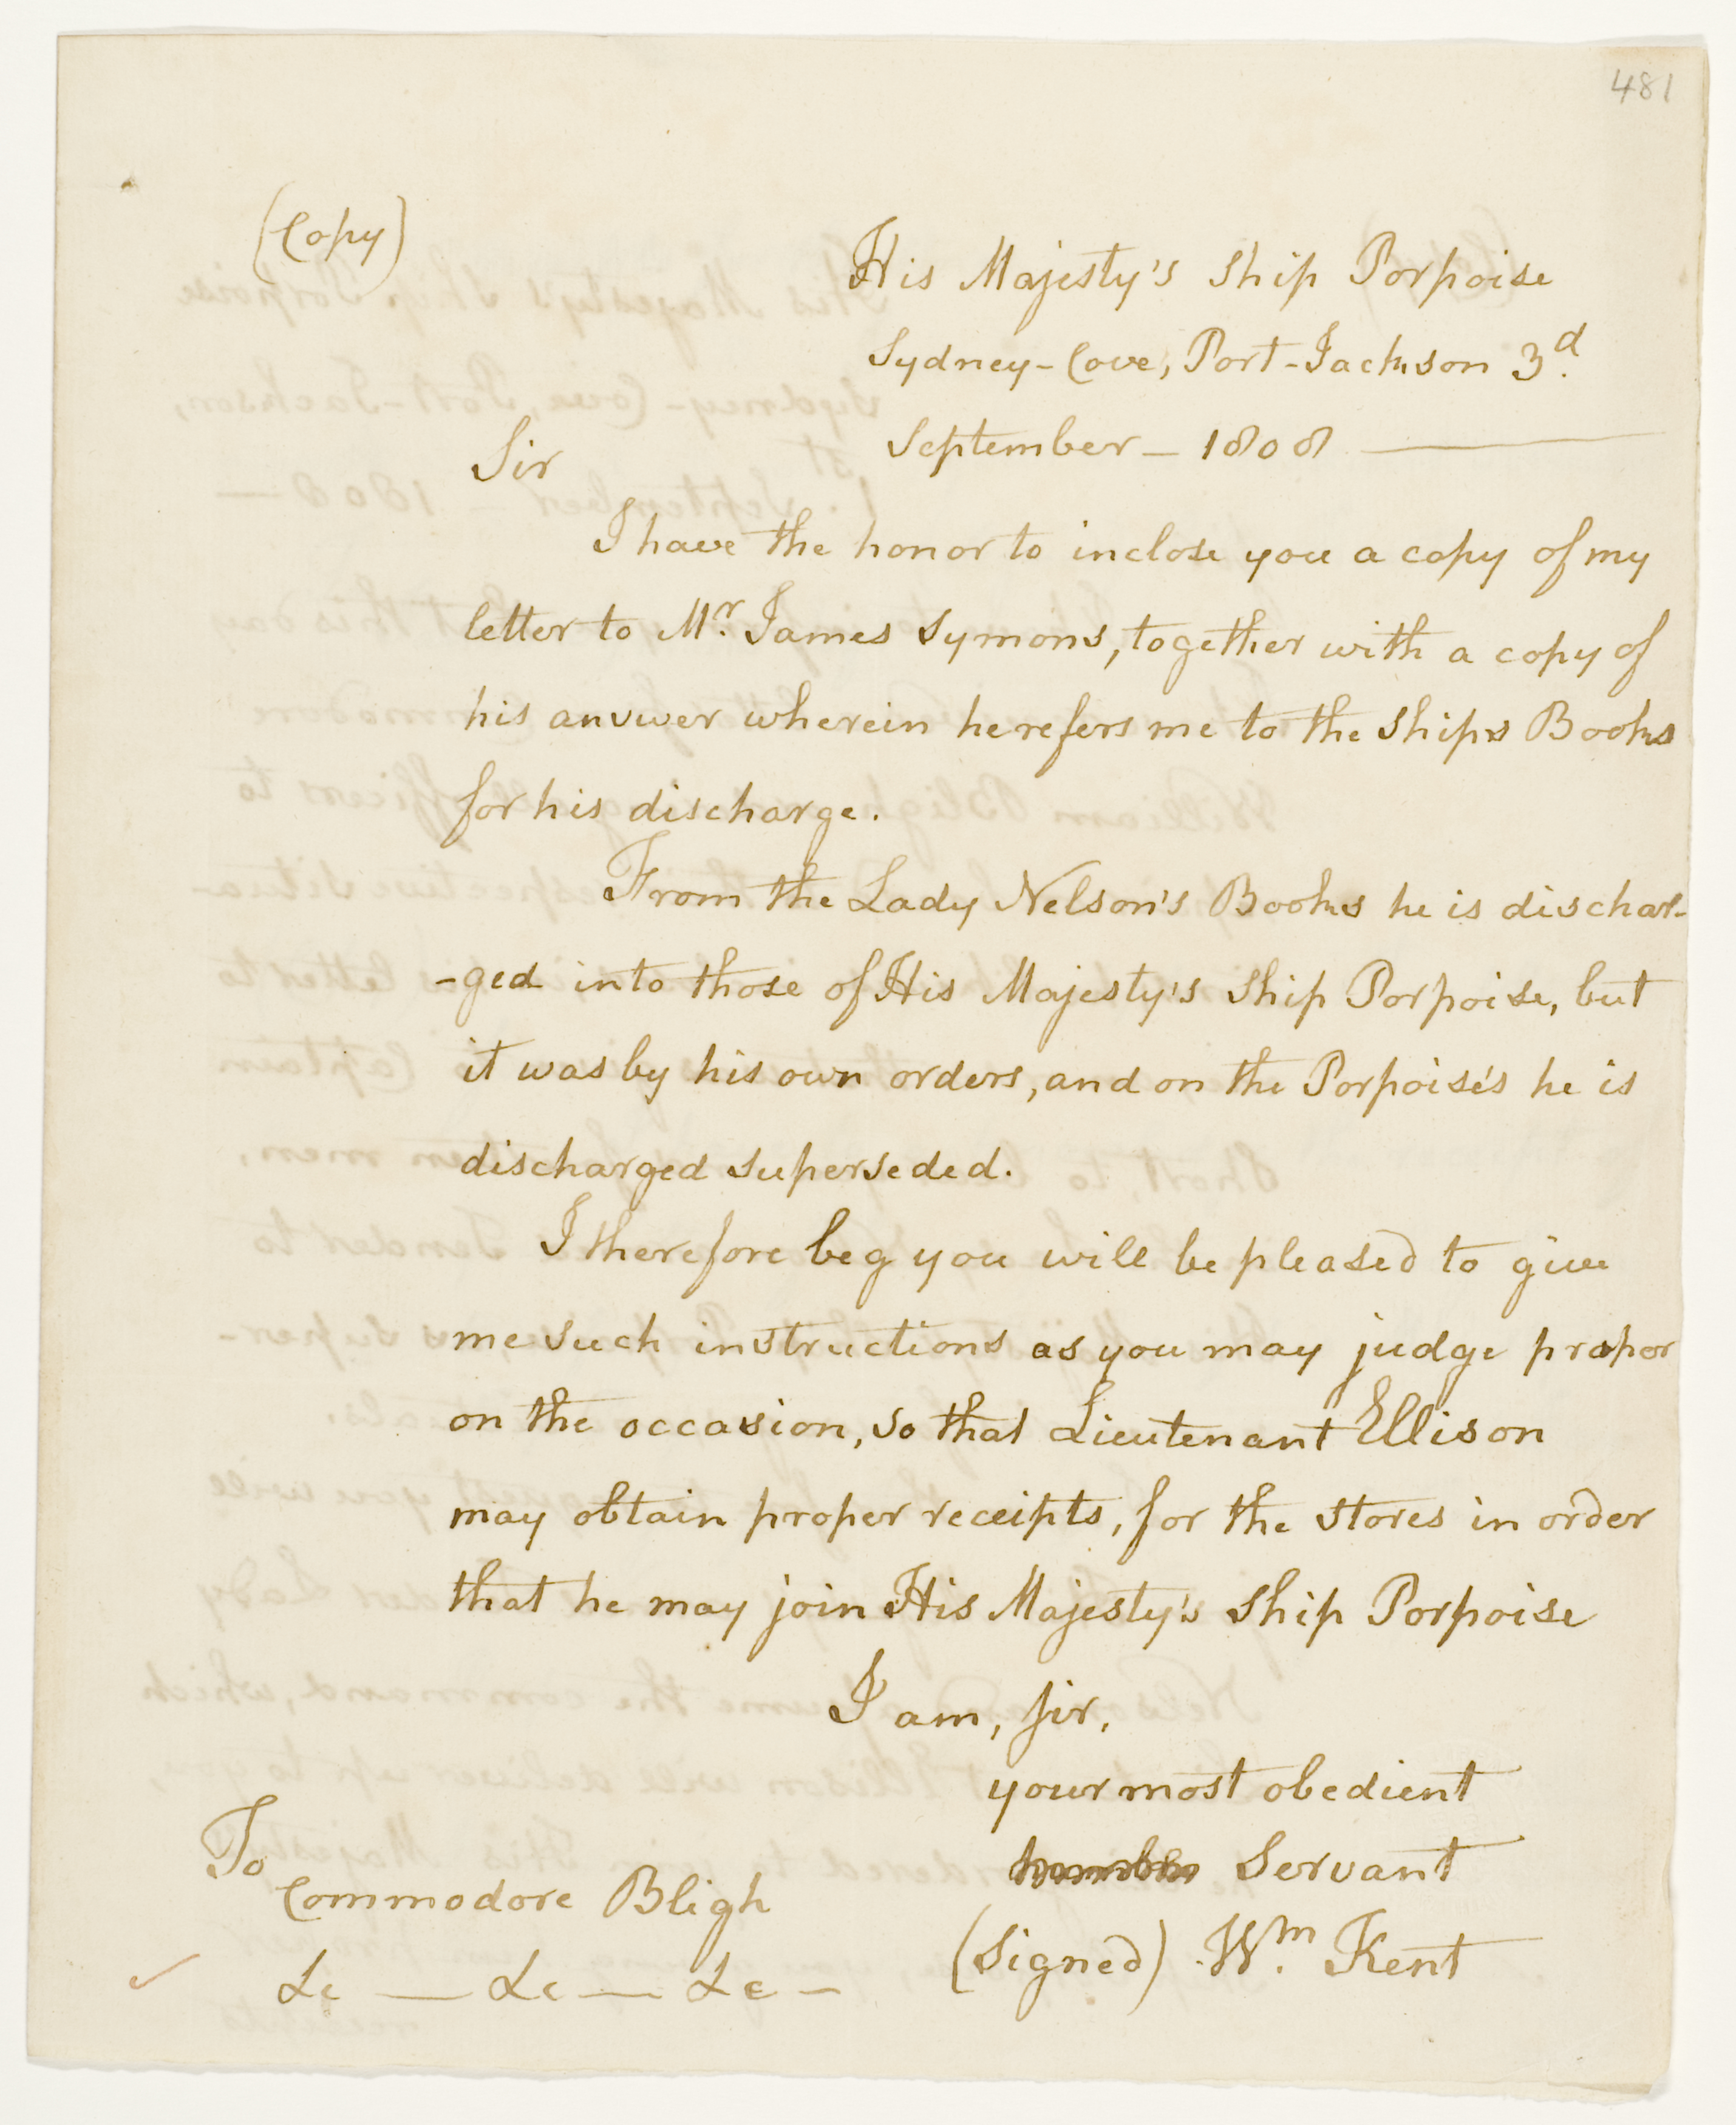 481
(Copy)
His Majesty's Ship Porpoise
Sydney-Cove, Port-Jackson 3d.
September - 1808
Sir
I have the honor to inclose you a copy of my
letter to Mr. James Symons, together with a copy of
his answer wherein he refers me to the Ships Books
for his discharge.
From the Lady Nelson's Books he is dischar-
-ged into those of His Majesty's Ship Porpoise, but
it was by his own orders, and on the Porpoise's he is
discharged superseded.
I therefore beg you will be pleased to give
me such instructions as you may judge proper
on the occasion, so that Lieutenant Ellison
may obtain proper receipts, for the stores in order
that he may join His Majesty's Ship Porpoise
I am, Sir,
your most obedient
humble Servant
(Signed) Wm. Kent
To
Commodore Bligh
&c — &c — &c -